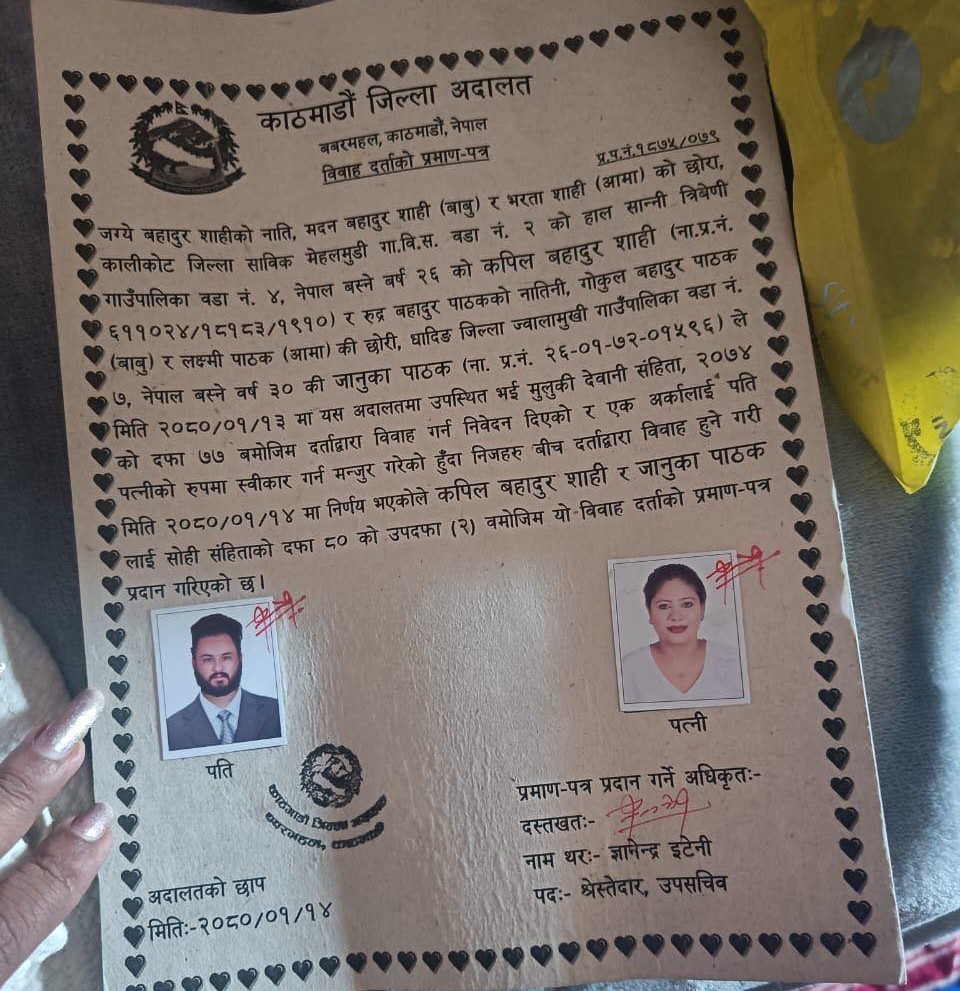 काठमाडौं जिल्ला अदालत
बबरमहल, काठमाडौं, नेपाल
विवाह दर्ताको प्रमाण-पत्र
प्र.प.नं.१८७५/०७९
जग्ये बहादुर शाहीको नाति, मदन बहादुर शाही (बाबु) र भरता शाही (आमा) को छोरा,
कालीकोट जिल्ला साविक मेहलमुडी गा.वि.स. वडा नं. २ को हाल सान्नी त्रिबेणी
गाउँपालिका वडा नं. ४, नेपाल बस्ने वर्ष २६ को कपिल बहादुर शाही (ना.प्र.नं.
६११०२४/१८१८३/१९१०) र रुद्र बहादुर पाठकको नातिनी, गोकुल बहादुर पाठक
(बाबु) र लक्ष्मी पाठक (आमा) की छोरी, धादिङ जिल्ला ज्वालामुखी गाउँपालिका वडा नं.
७, नेपाल बस्ने वर्ष ३० की जानुका पाठक (ना. प्र.नं. २६-०१-७२-०१५९६) ले
मिति २०८०/०१/१३ मा यस अदालतमा उपस्थित भई मुलुकी देवानी संहिता, २०७४
को दफा ७७ बमोजिम दर्ताद्वारा विवाह गर्न निवेदन दिएको र एक अर्कालाई पति
पत्नीको रुपमा स्वीकार गर्न मन्जुर गरेको हुँदा निजहरु बीच दर्ताद्वारा विवाह हुने गरी
मिति २०८०/०१/१४ मा निर्णय भएकोले कपिल बहादुर शाही र जानुका पाठक
लाई सोही संहिताको दफा ८० को उपदफा (२) वमोजिम यो विवाह दर्ताको प्रमाण-पत्र
प्रदान गरिएको छ।
पति
पत्नी
काठमाडौं जिल्ला अदालत
बबरमहल, काठमाडौं
प्रमाण-पत्र प्रदान गर्ने अधिकृतः-
दस्तखतः-
नाम थरः- ज्ञानेन्द्र इटेनी
पदः- श्रेस्तेदार, उपसचिव
अदालतको छाप
मितिः-२०८०/०१/१४